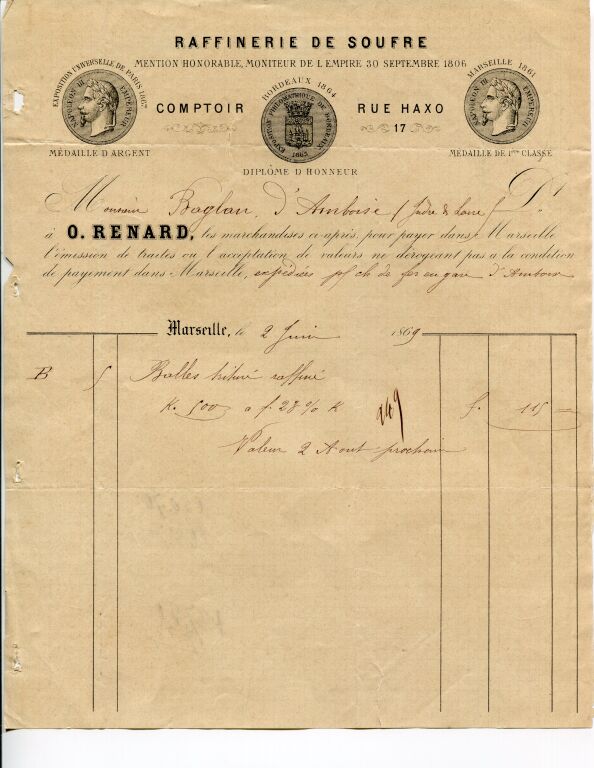 RAFFINERIE DE SOUFRE
MENTION HONORABLE, MONITEUR DE L EMPIRE 30 SEPTEMBRE 1806
EXPOSITION UNIVERSELLE DE PARIS 1867
NAPOLEON III EMPEREUR
MÉDAILLE D'ARGENT
COMPTOIR
BORDEAUX 1864
EXPOSITION PHILOMATHIQUE DE BORDEAUX
1865
DIPLÔME D'HONNEUR
RUE HAXO
17
MARSEILLE 1861
NAPOLEON III EMPEREUR
MÉDAILLE DE 1ère CLASSE
Monsieur Baglan, d'Amboise (Indre & Loire) Dt
à O. RENARD, les marchandises ci-après, pour payer dans Marseille
l'émission de traites ou l'acceptation de valeurs ne dérogeant pas à la condition
de payement dans Marseille, expédiées pr ch de fer en gare d'Amboise
Marseille, le 2 Juin 1869
B 5 Balles trituré raffiné
K. 500 a f. 23 % K f. 115 —
249
Valeur 2 Aout prochain